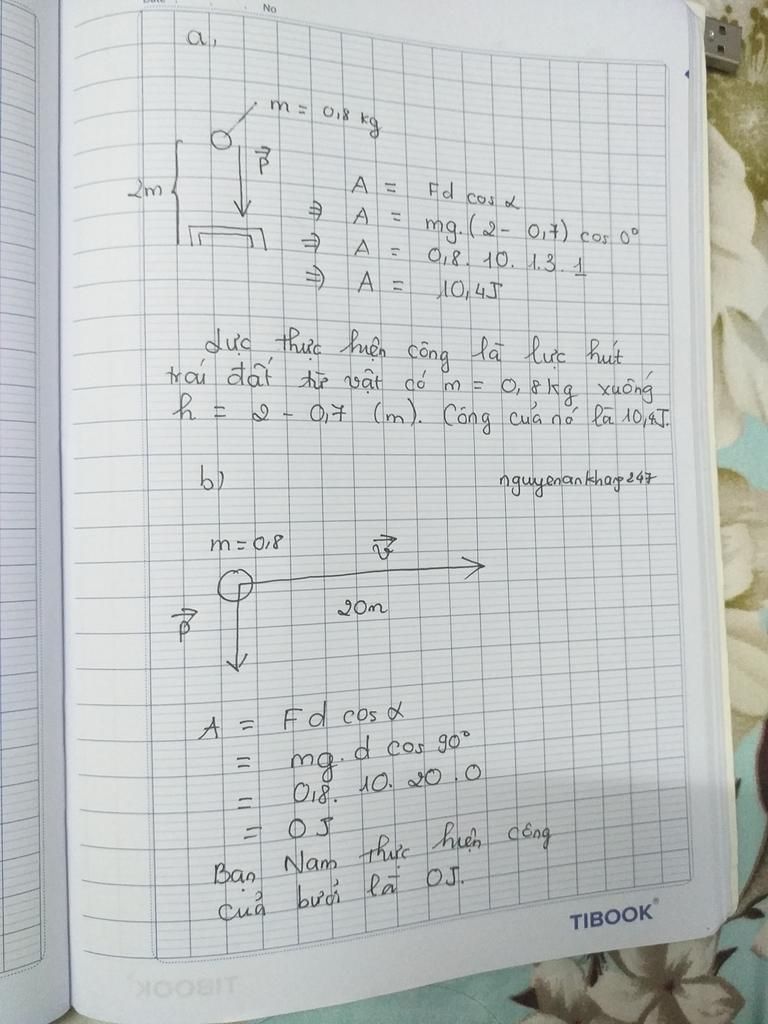 No
a,
m = 0,8 kg
P
2m
A = Fd cos α
⇒ A = mg.(2 - 0,7) cos 0°
⇒ A = 0,8. 10. 1.3. 1
⇒ A = 10,4J
Lực thực hiện công là lực hút
trái đất từ vật có m = 0,8kg xuống
h = 2 - 0,7 (m). Công của nó là 10,4J.
b)
nguyenankhang247
m = 0,8
v
20m
P
A = Fd cos α
= mg. d cos 90°
= 0,8. 10. 20 . 0
= 0J
Bạn Nam thực hiện công
của bưởi là 0J.
TIBOOK